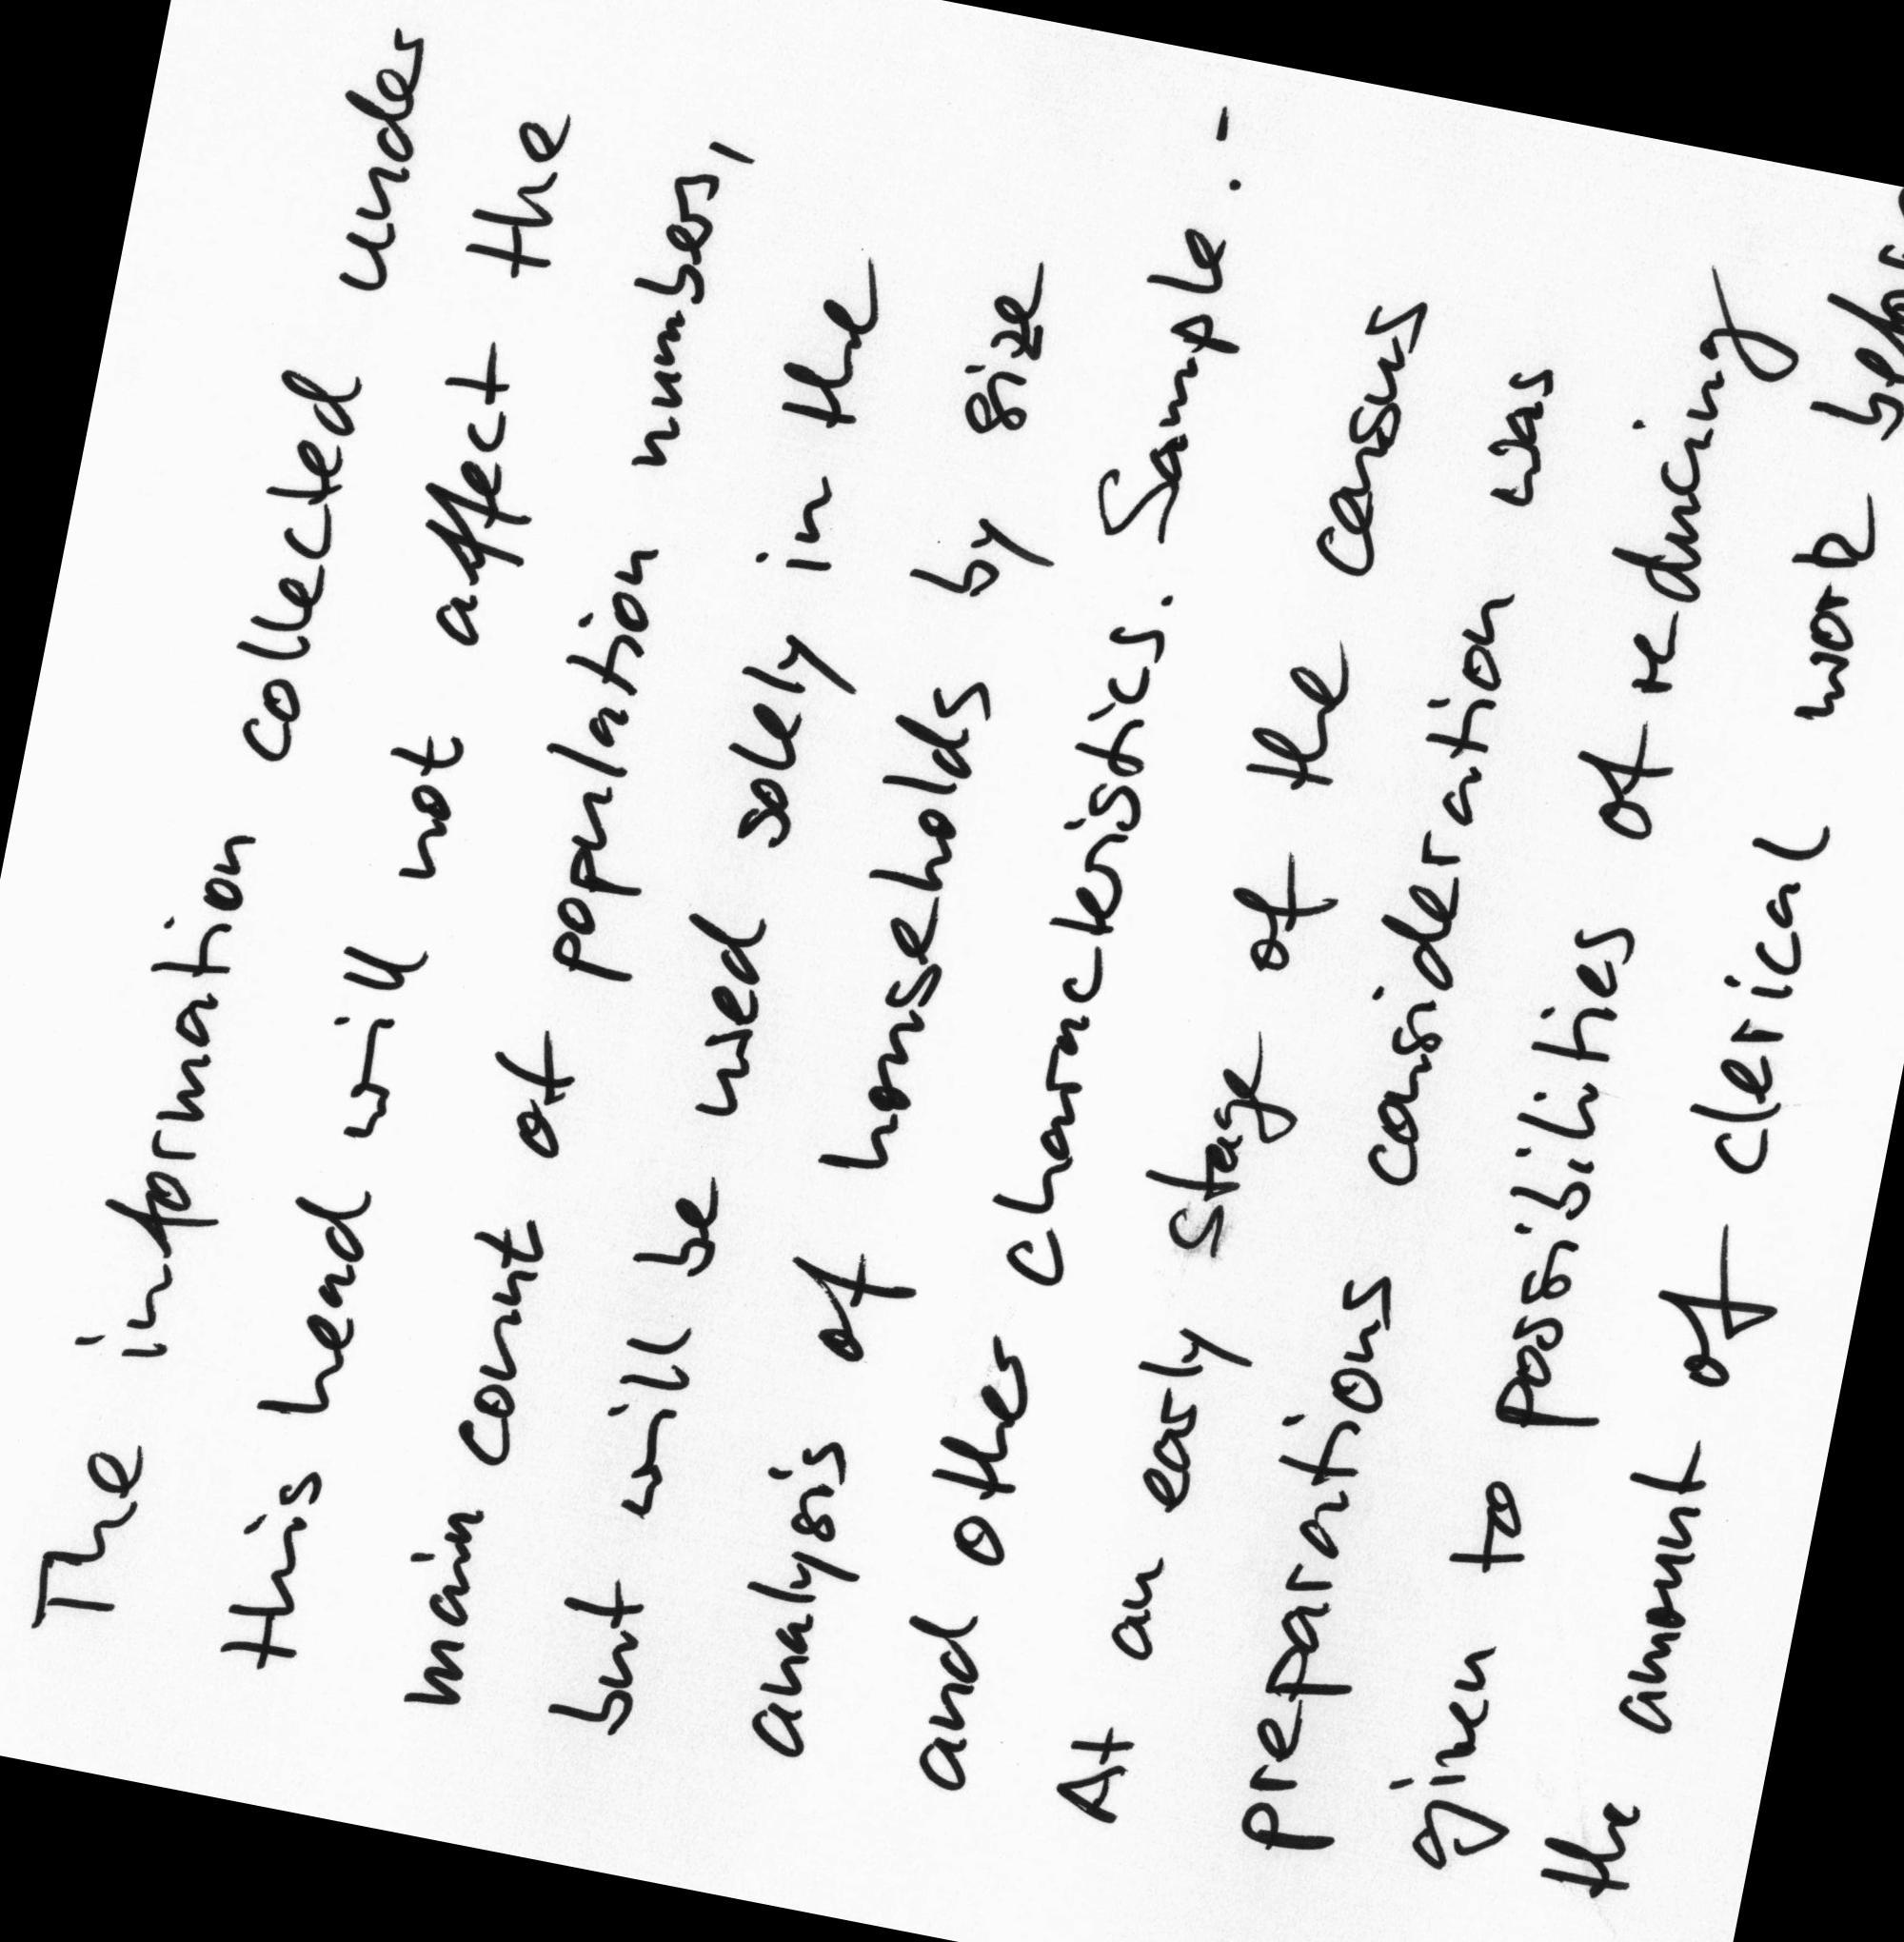 The information collected under
this head will not affect the
main count of population number,
but will be used solely in the
analysis of households by size
and other characteristics. Sample. -
At an early stage of the census
preparations consideration was
given to possibilities of re-ducing
the amount of clerical work